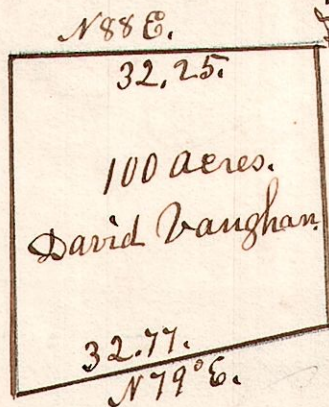 N88E.
32.25.
100 acres.
David Vaughan.
32.77.
N79°E.